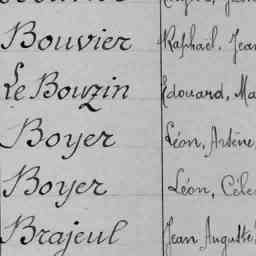 Bouvier Raphaël, Jean
Le Bouzin Edouard, Ma
Boyer Léon, Arsène
Boyer Léon, Céle
Brajeul Jean Auguste